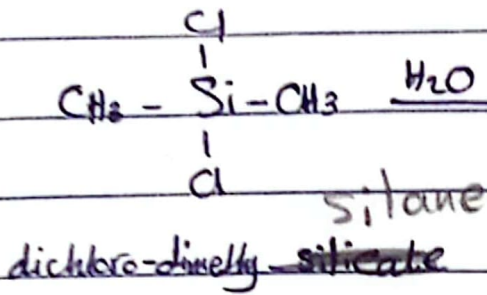 Cl
CH3 - Si - CH3 H2O
Cl
silane
dichloro-dimethy silicate